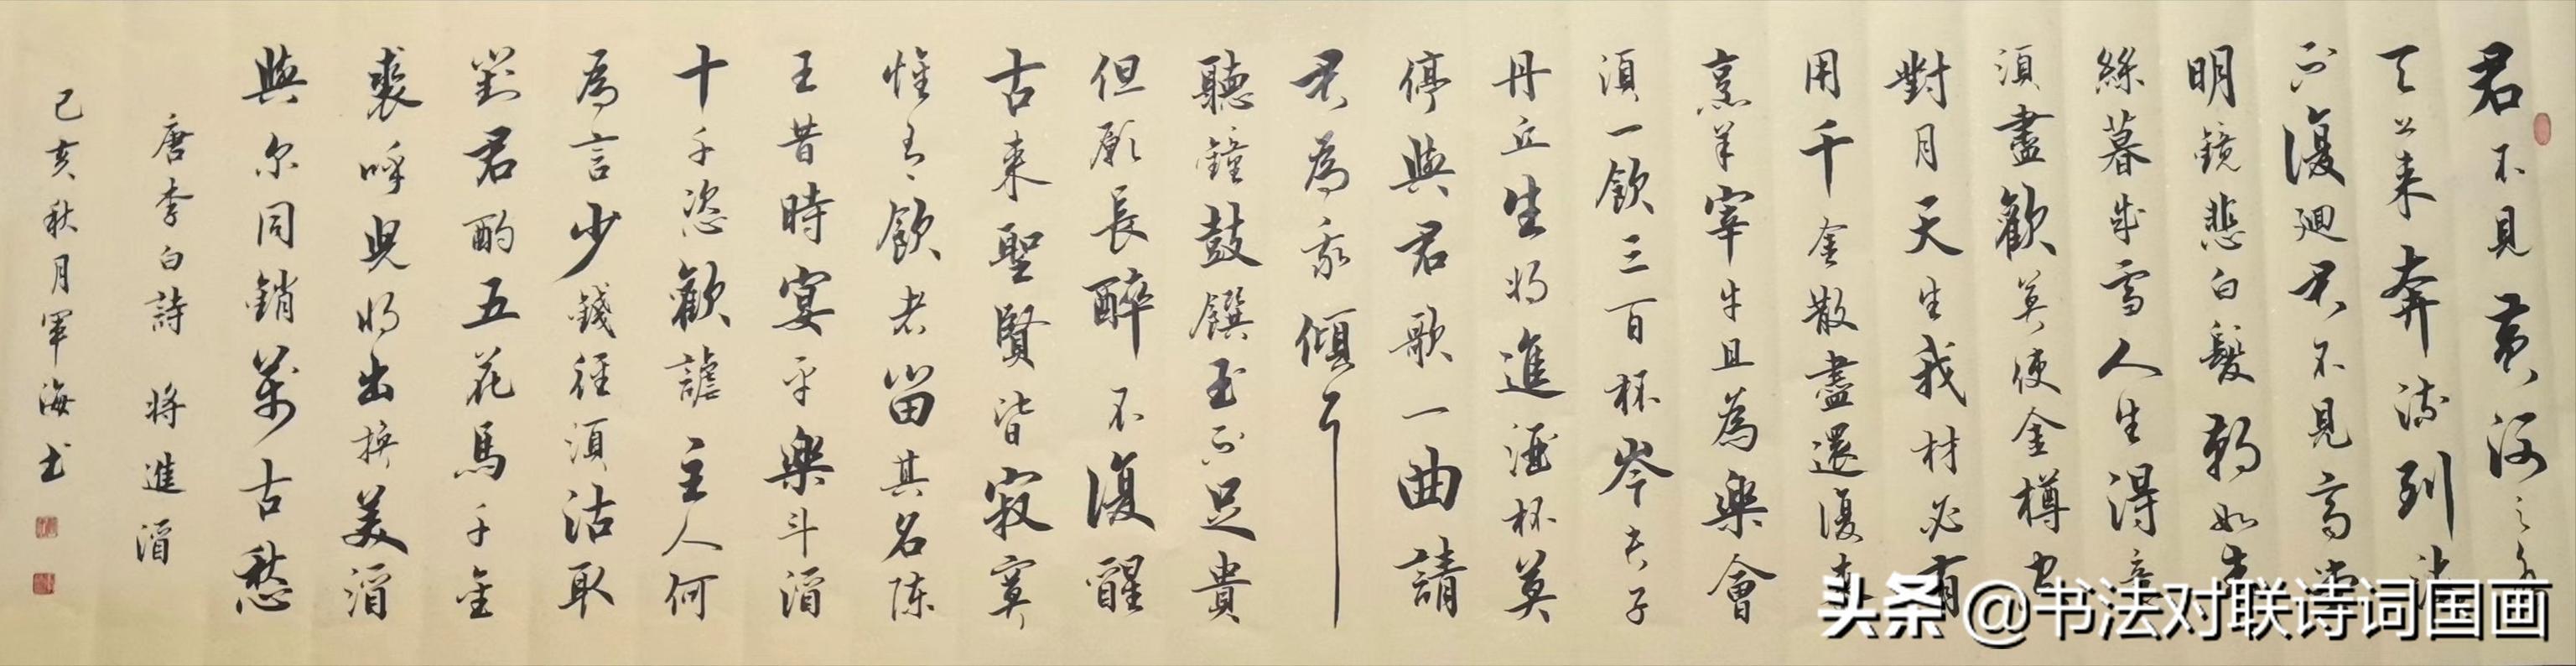 君不見黃河之水
天上來奔流到海
不復迴君不見高堂
明鏡悲白髮朝如青
絲暮成雪人生得意
須盡歡莫使金樽空
對月天生我材必有
用千金散盡還復來
烹羊宰牛且為樂會
須一飲三百杯岑夫子
丹丘生將進酒杯莫
停與君歌一曲請
君為我傾耳
聽鐘鼓饌玉不足貴
但願長醉不復醒
古來聖賢皆寂寞
惟有飲者留其名陳
王昔時宴平樂斗酒
十千恣歡謔主人何
為言少錢徑須沽取
對君酌五花馬千金
裘呼兒將出換美酒
與尔同銷萬古愁
唐李白詩 將進酒
己亥秋月軍海书
头条@书法对联诗词国画